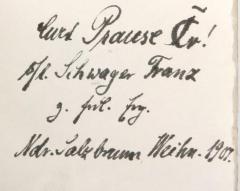 Curt Prause Cr!
s/l. Schwager Franz
z. frdl. Erg.
Ndr. Salzbrunn Weihn. 1907.